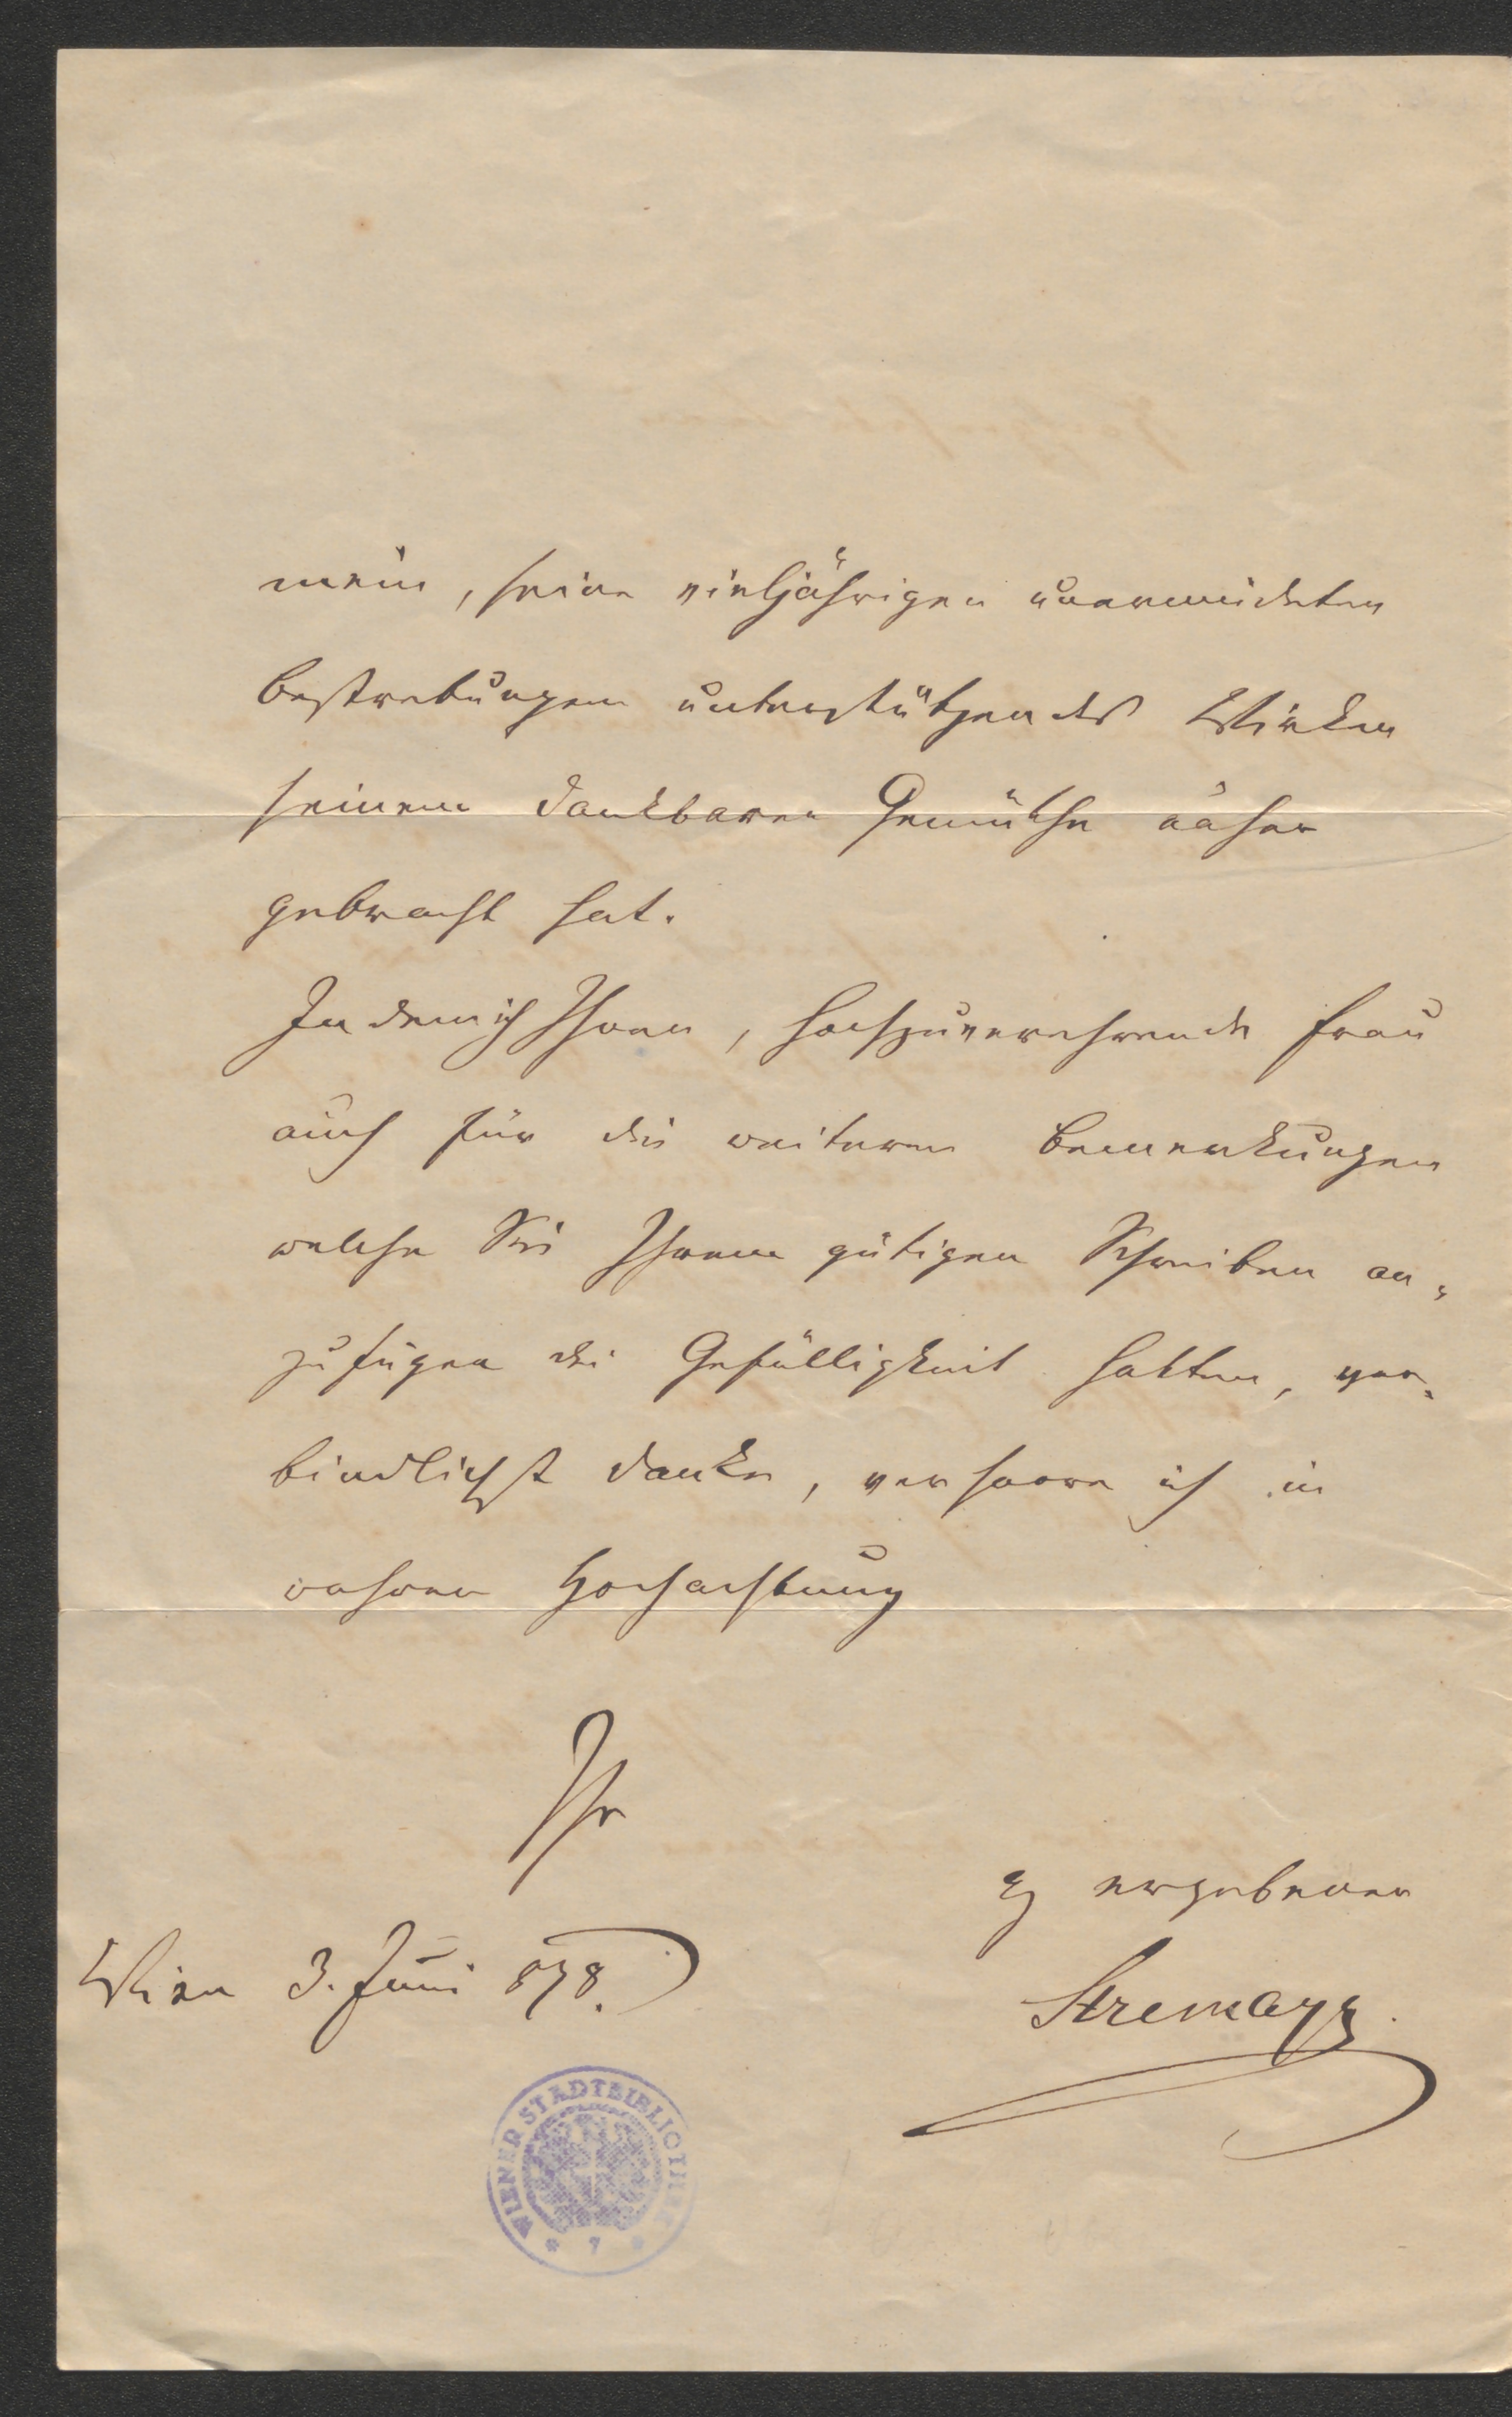 mein, seine vieljährigen unermüdeten
Bestrebungen unterstützendes Wirken
seinem dankbaren Gemüthe näher
gebracht hat.
Indem ich Ihnen, hochzuverehrende Frau
auch für die weiteren Bemerkungen
welche Sie Ihrem gütigen Schreiben an-
zufügen die Gefälligkeit hatten, ver-
bindlichst danke, verharre ich in
wahrer Hochachtung
Ihr
ergebener
Wien 3. Juni 878.
Stremayr
WIENER STADTBIBLIOTHEK
* 7 *